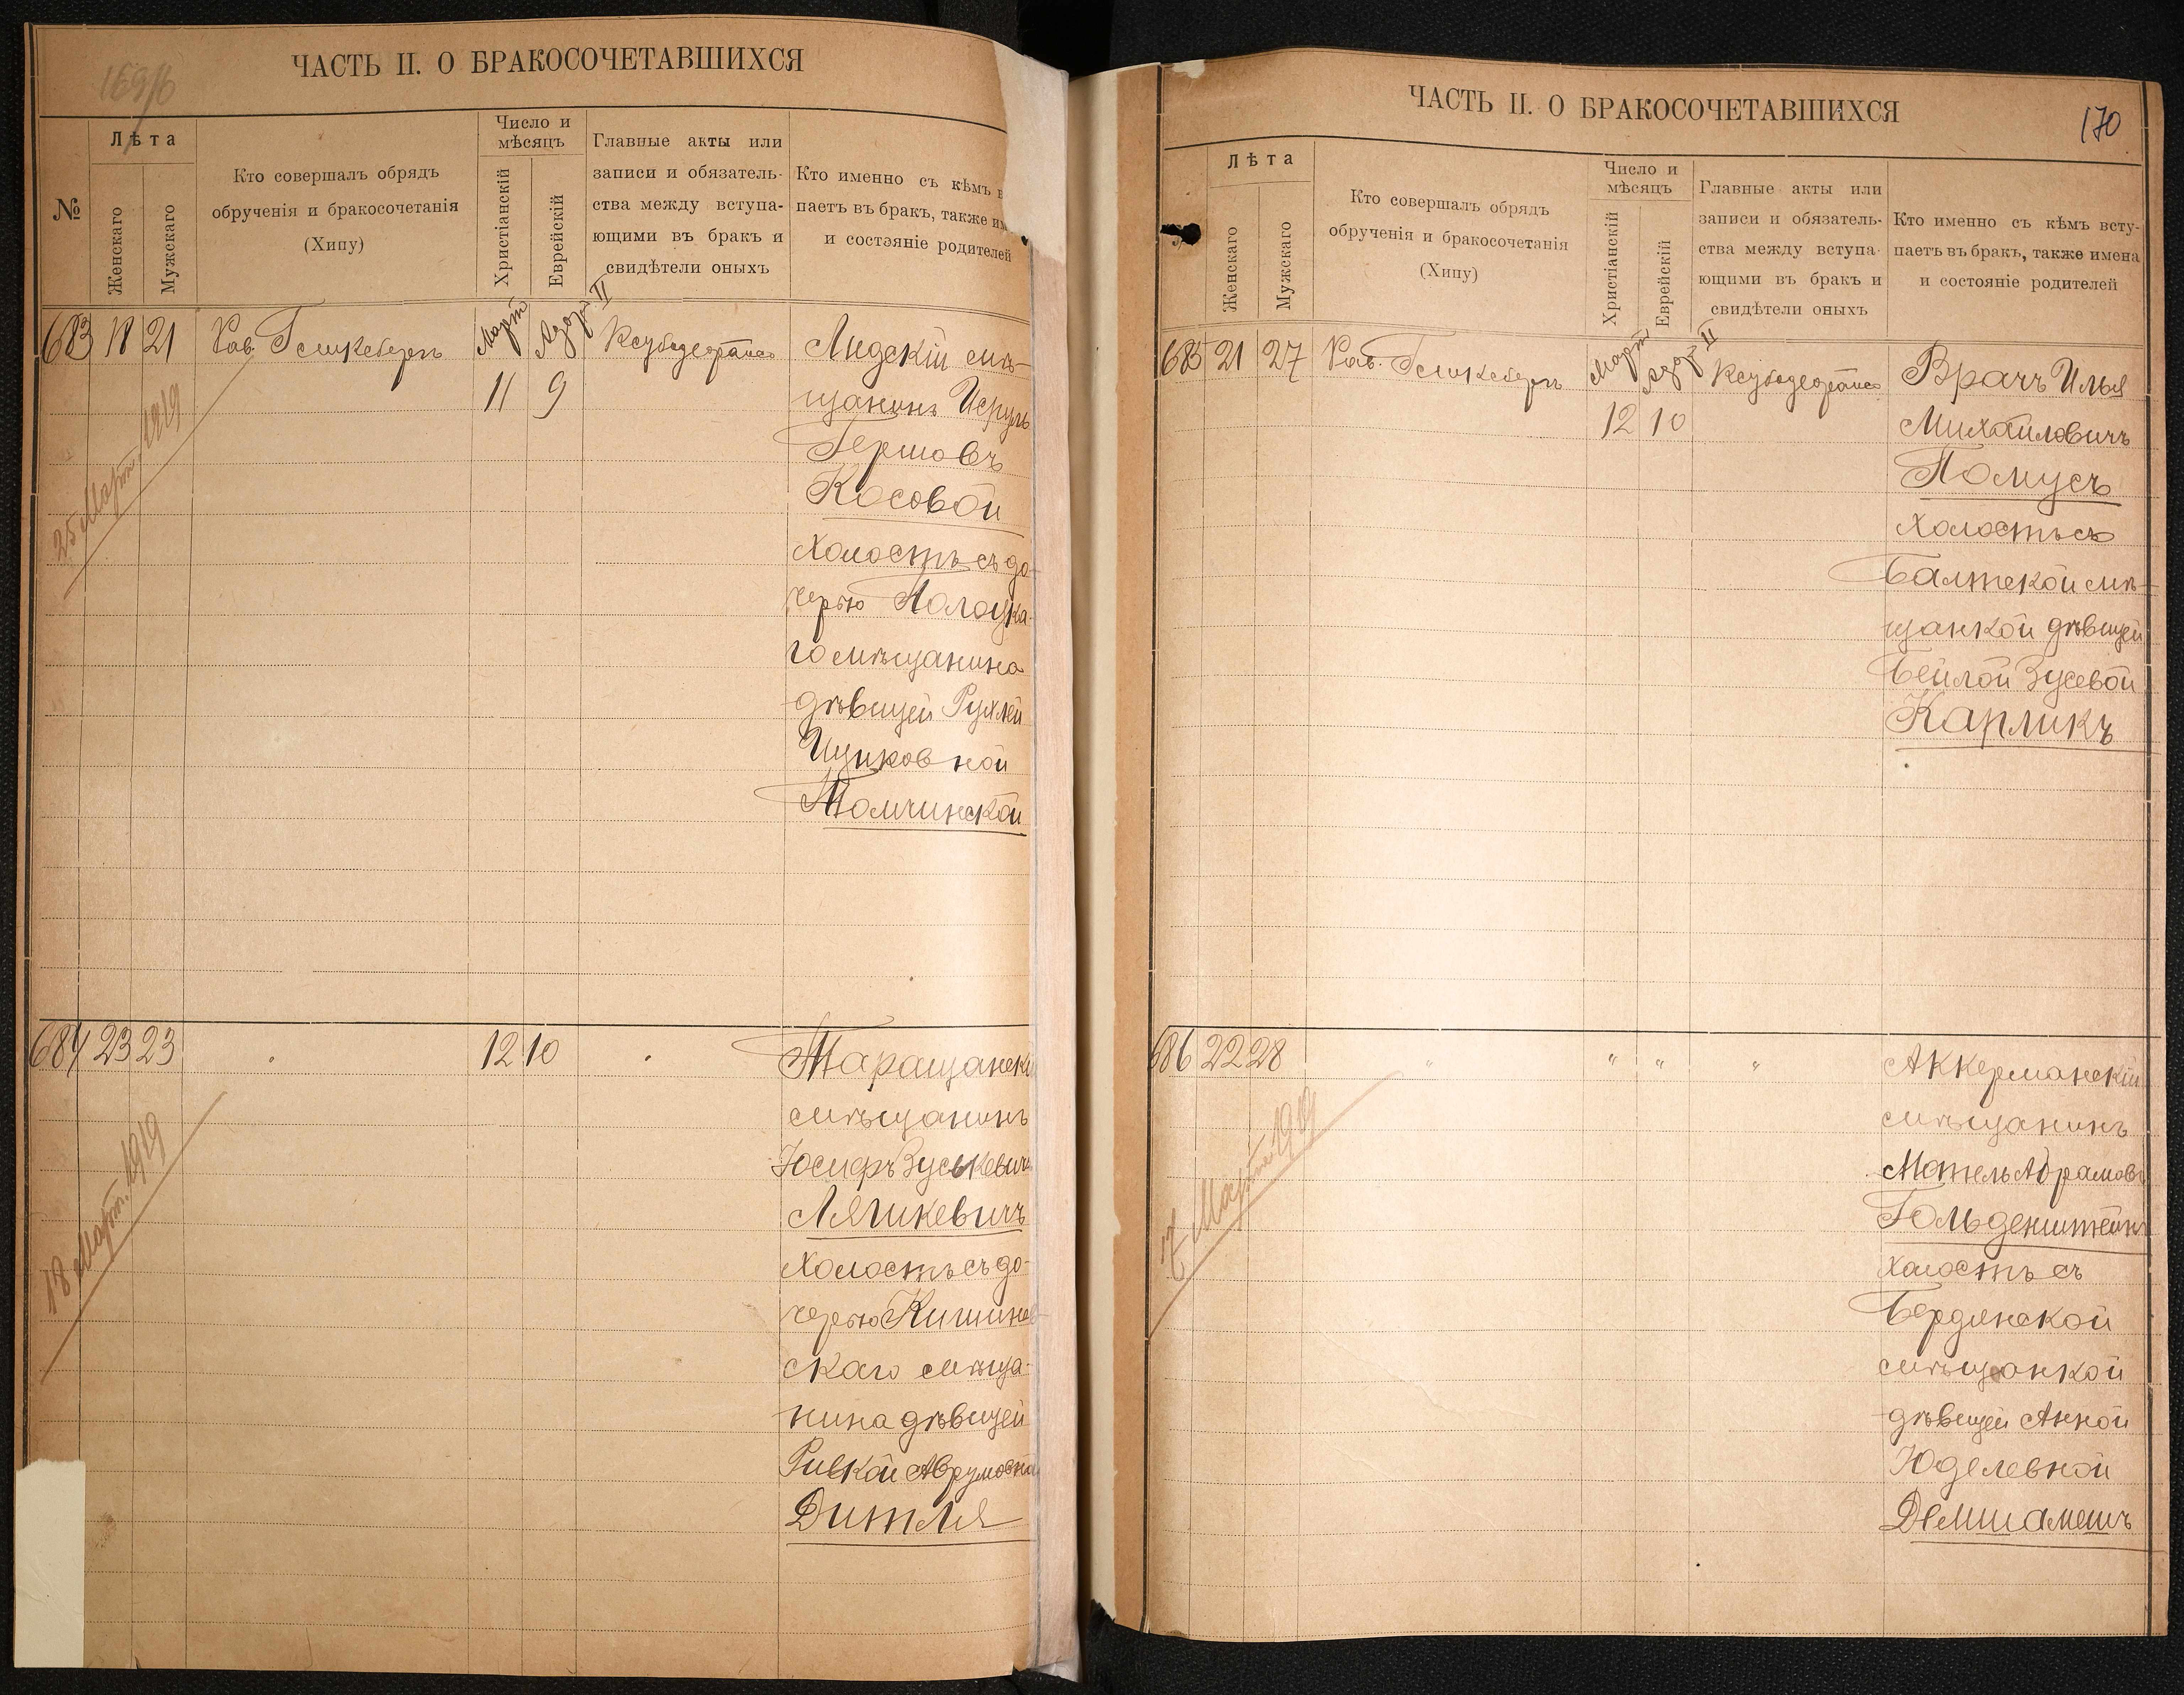 169/б
ЧАСТЬ II. О БРАКОСОЧЕТАВШИХСЯ
№
Лѣта
Женскаго
Мужскаго
Кто совершалъ обрядъ
обрученія и бракосочетанія
(Хипу)
Число и
мѣсяцъ
Христіанскій
Еврейскій
Главные акты или
записи и обязатель-
ства между вступа-
ющими въ бракъ и
свидѣтели оныхъ
Кто именно съ кѣмъ в
паетъ въ бракъ, также им
и состояніе родителей
683 18 21
Рав.
Март
Адор. II
11 9
Лидскій мѣ-
щанинъ Исруль
Гершовъ
Косовой
холостъ съ до-
черью Полоцка-
го мѣщанина
дѣвицей Рухлей
Ицковной
Толчинской
25 Март. 1919
684 23 23
12 10
Таращанск
мѣщанинъ
Іосифъ Зуськевич
Лягикевичъ
холостъ съ до-
черью Кишинев-
скаго мѣща-
нина дѣвицей
Ривкой Аврумовна
Дитля
18 Март. 1919
ЧАСТЬ II. О БРАКОСОЧЕТАВШИХСЯ
170
Лѣта
Женскаго
Мужскаго
Кто совершалъ обрядъ
обрученія и бракосочетанія
(Хипу)
Число и
мѣсяцъ
Христіанскій
Еврейскій
Главные акты или
записи и обязатель-
ства между вступа-
ющими въ бракъ и
свидѣтели оныхъ
Кто именно съ кѣмъ всту-
паетъ въ бракъ, также имена
и состояніе родителей
685 21 27
Рав.
Март
Адор II
12 10
Врачъ Илья
Михайловичъ
Помусъ
холостъ съ
Балтской мѣ-
щанкой дѣвицей
Бейлой Зусевой
Карликъ
686 22 28
" " " "
Аккерманскій
мѣщанинъ
Мотель Абрамовъ
Гольденштейнъ
холостъ съ
Бердянской
мѣщанкой
дѣвицей Анной
Юделевной
Демшамешъ
17 Март. 1919